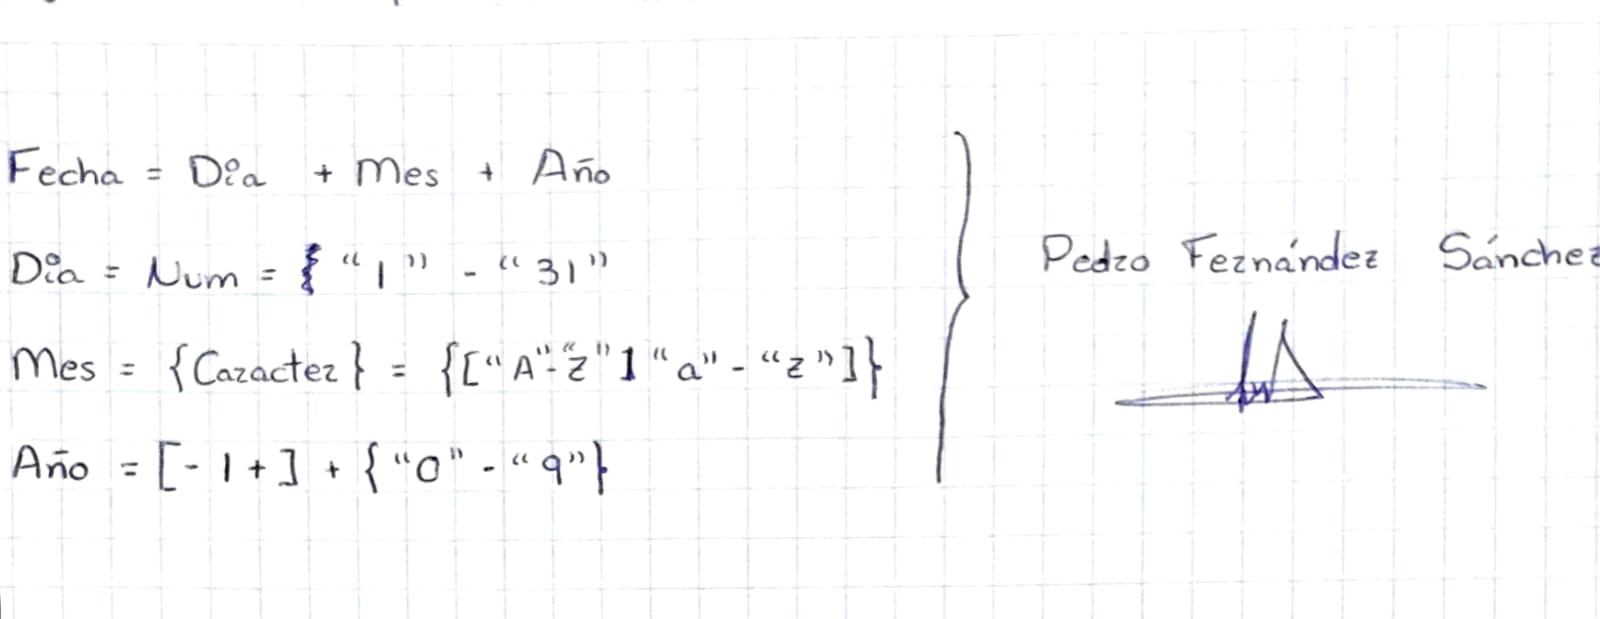 Fecha = Día + Mes + Año
Día = Num = { "1" - "31"
Mes = {Caracter} = {["A"-"Z"] "a" - "z"]}
Año = [- 1 +] + {"0" - "9"}
Pedro Fernández Sánchez